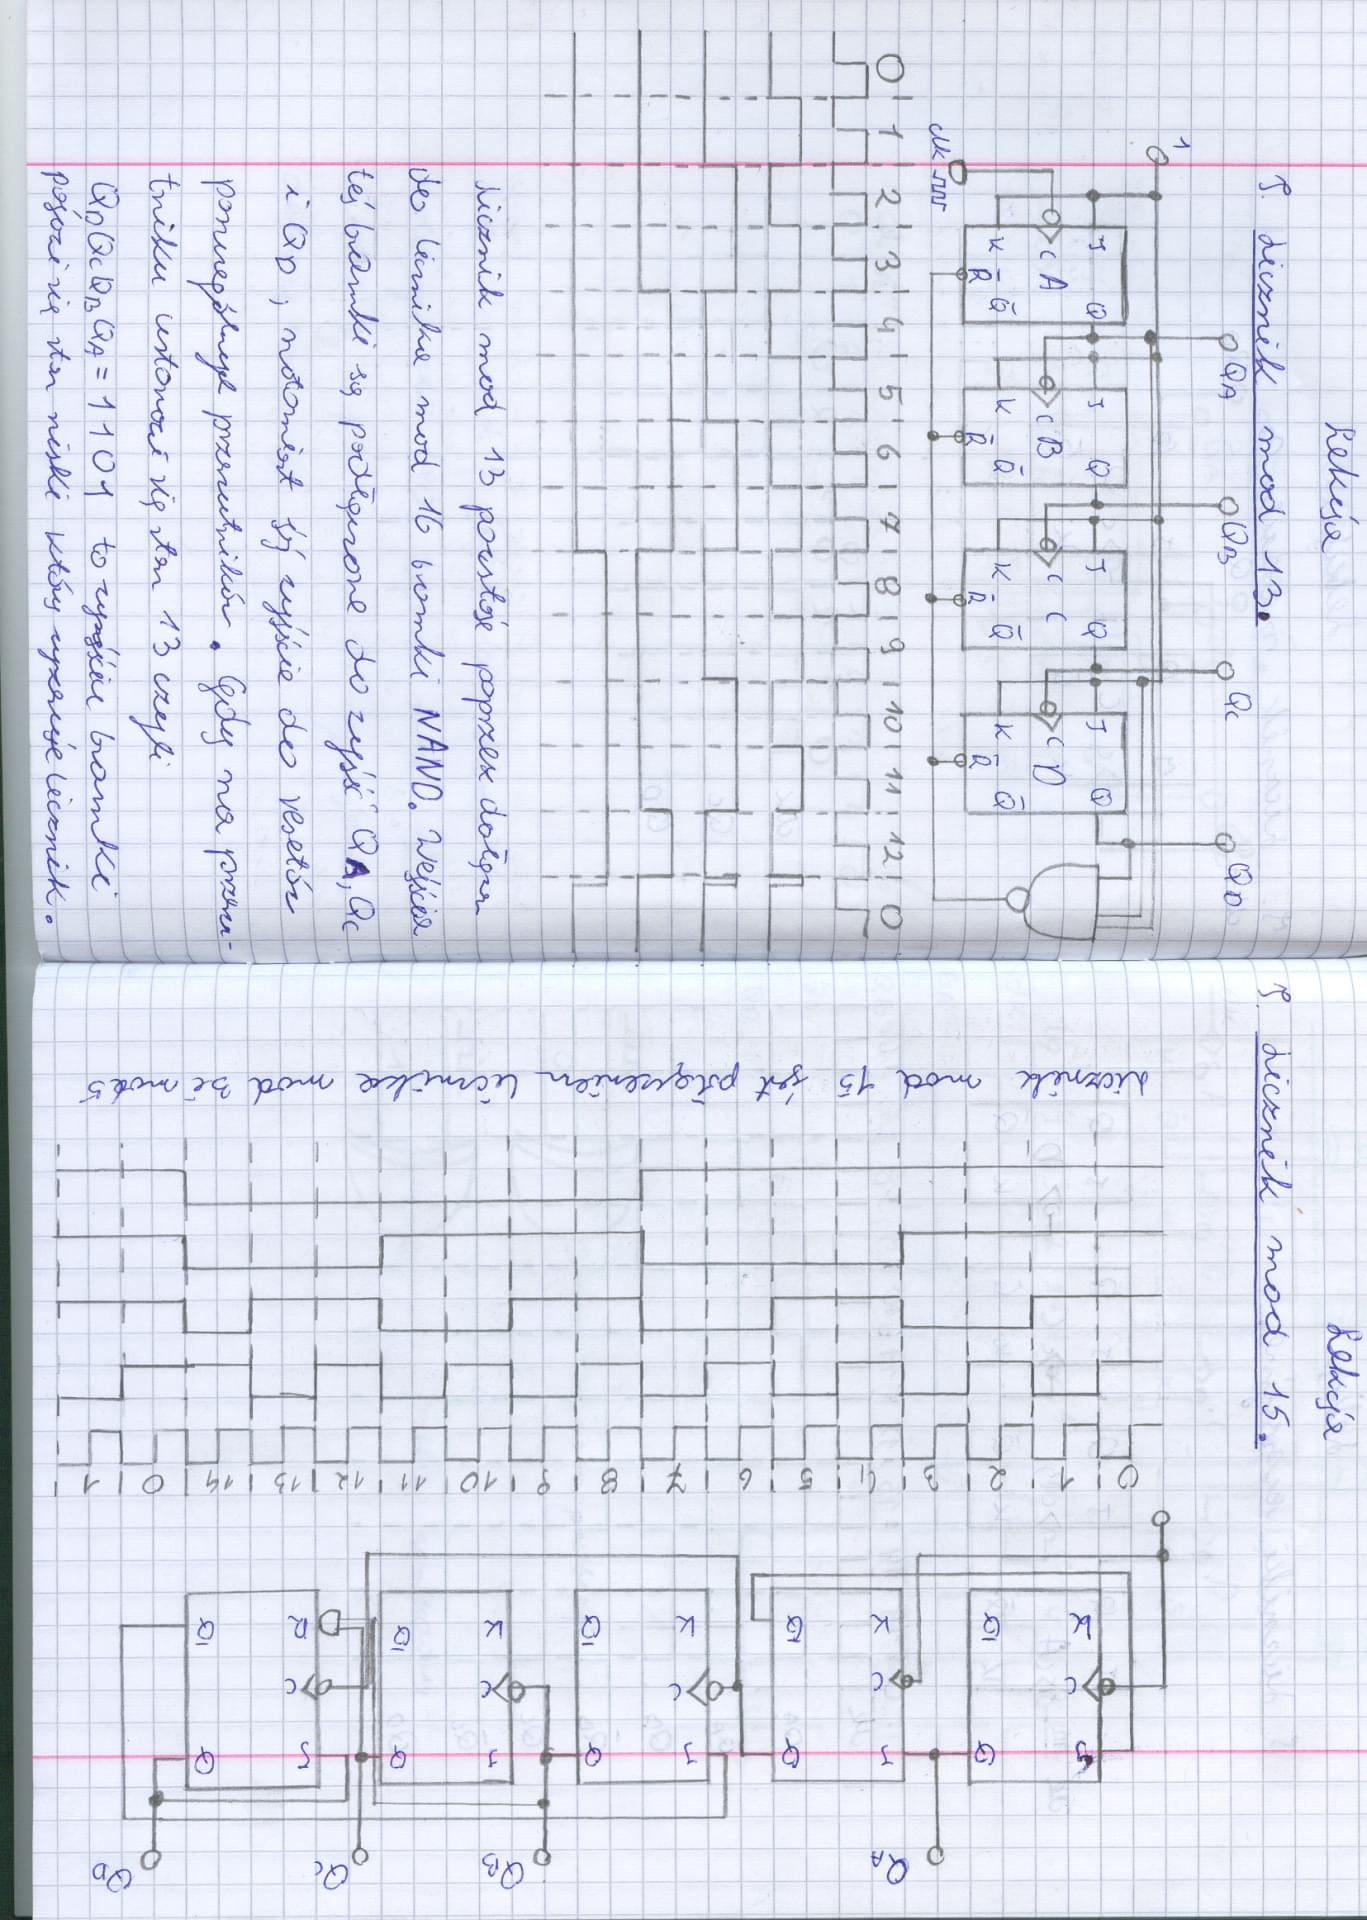 Lekcja
T. Licznik mod 13.
1
QA
QB
QC
QD
J Q J Q J Q J Q
C A C B C C C D
K Q̄ K Q̄ K Q̄ K Q̄
R̄ R̄ R̄ R̄
0 1 2 3 4 5 6 7 8 9 10 11 12 0
Licznik mod 13 powstaje poprzez dołącz
do licznika mod 16 bramki NAND. Wejścia
tej bramki są podłączone do wyjść QA, QC
i QD, natomiast jej wyjście do resetów
poszczególnych przerzutników. Gdy na przerzu-
tniku ustawi się stan 13 czyli
QDQCQBQA = 1101 to wyjściu bramki
pojawi się stan niski który wyzeruje licznik.
Lekcja
T. Licznik mod 15.
Licznik mod 15 jest połączeniem licznika mod 3 i mod 5
0 1 2 3 4 5 6 7 8 9 10 10 11 12 13 14 0 1
K Q̄ K Q̄ K Q̄ K Q̄ R Q̄
C C C C C
J Q J Q J Q J Q J Q
QA
QB
QC
QD